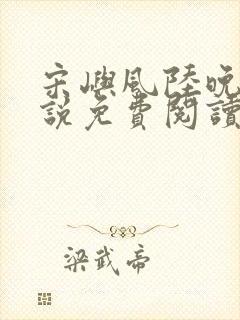 宋嶼風陸晚
說免費閱讀
梁武帝